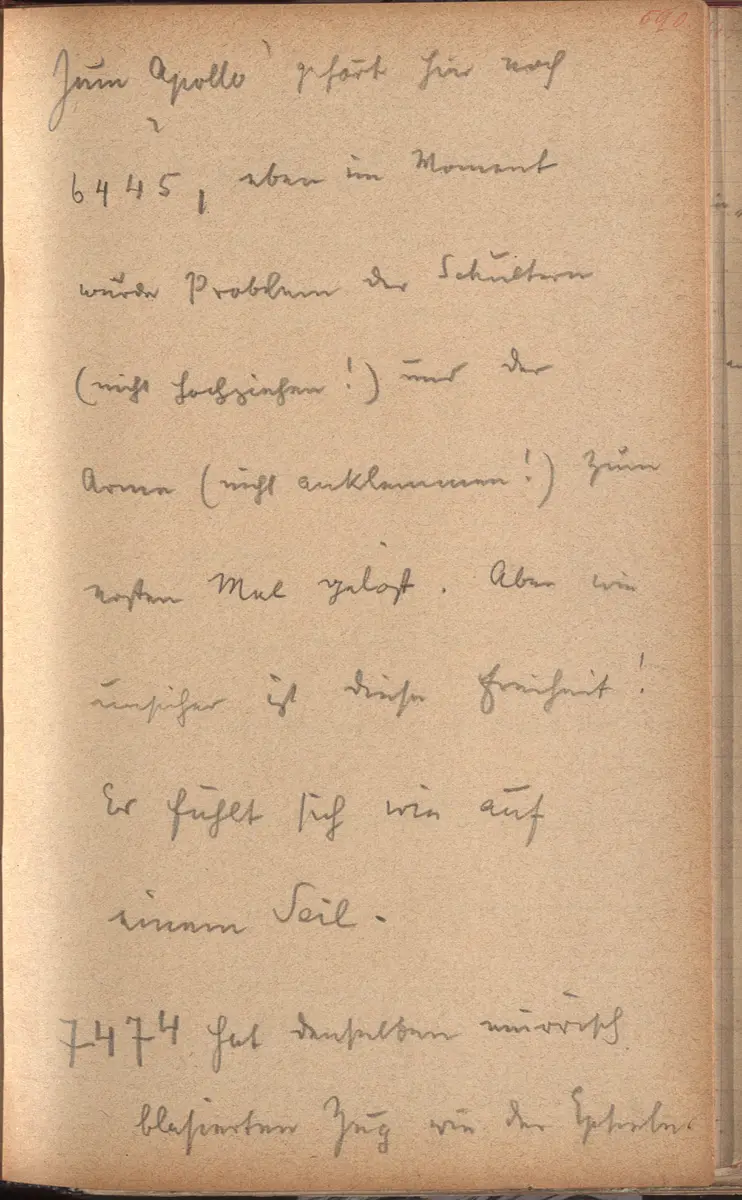 590.
Zum Apollo gehört hier noch
6445, eben im Moment
wurde Problem der Schultern
(nicht hochziehen!) und der
Arme (nicht anklemmen!) zum
ersten Mal gelöst. Aber wie
unsicher ist diese Freiheit!
Er fühlt sich wie auf
einem Seil.
7474 hat denselben mürrisch
blasierten Zug wie der